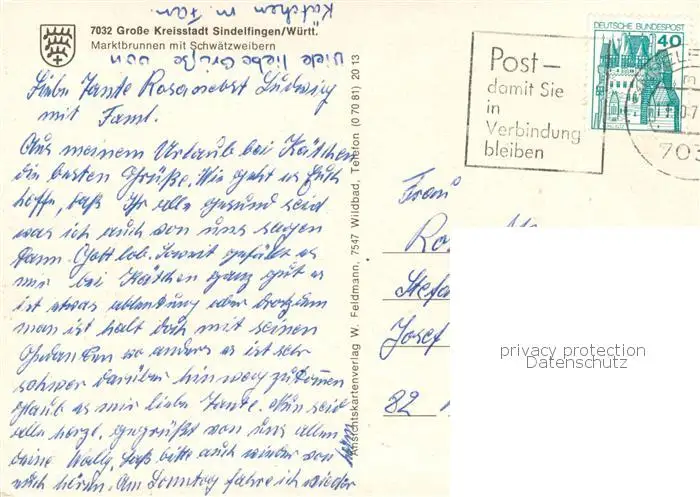 7032 Große Kreisstadt Sindelfingen/Württ.
Marktbrunnen mit Schwätzweibern
Viele liebe Grüße von
Kätchen m. Fam.
Liebe Tante Rosa nebst Ludwig
mit Faml.
Aus meinem Urlaub bei Kätchen
die besten Grüße. Wie geht es Euch
hoffe, daß Ihr alle gesund seid
was ich auch von uns sagen
kann. Gott lob. Soweit gefällt es
mir bei Kätchen ganz gut es
ist etwas ablenkung aber trozdem
man ist halt doch mit seinen
Gedanken wo anders es ist sehr
schwer darüber hinweg zu kommen
glaub es mir liebe Tante. Nun seid
alle herzl. gegrüßt von uns allen
deine Wally, laß bitte auch wieder von
euch hören. Am Sonntag fahre ich wieder
heim
Ansichtskartenverlag W. Feldmann, 7547 Wildbad, Telefon (0 70 81) 20 13
Post –
damit Sie
in
Verbindung
bleiben
DEUTSCHE BUNDESPOST
40
703
Frau
Ro
Stefa
Josef
82
privacy protection
Datenschutz